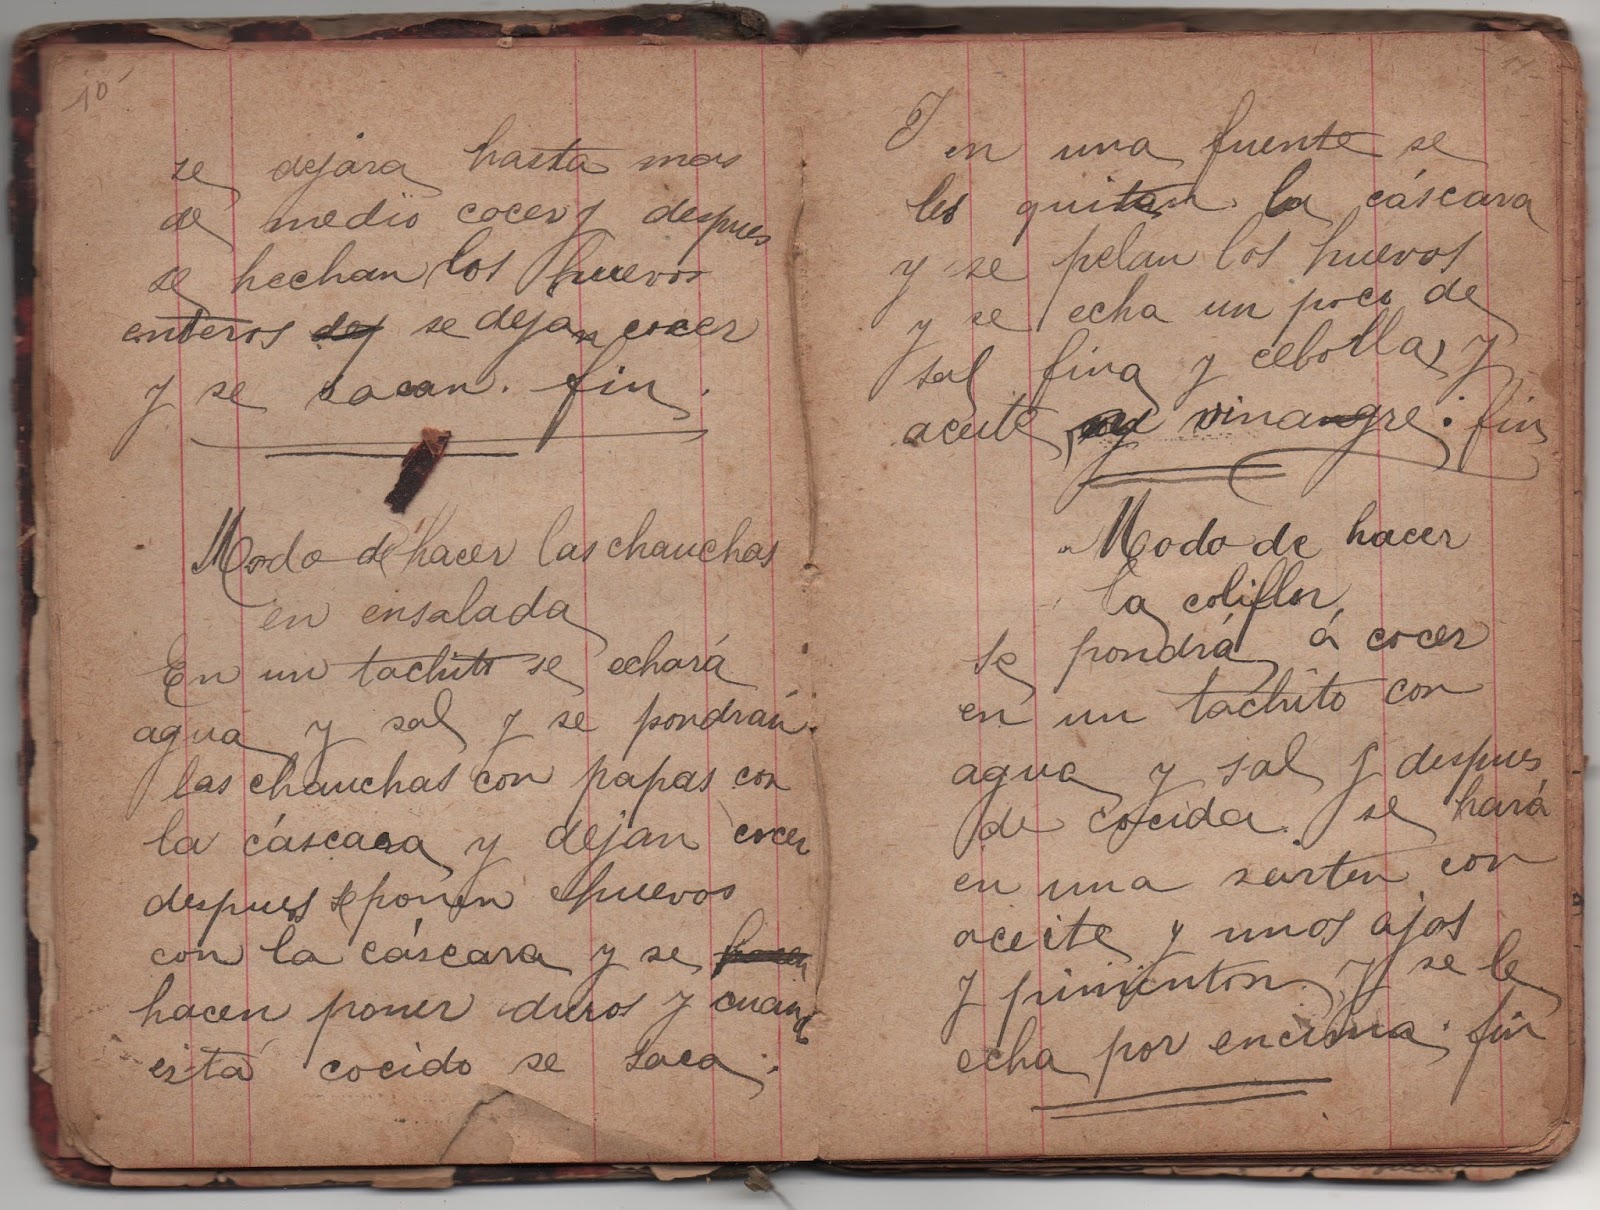 10
se dejara hasta mas
de medio cocer y despues
se hechan los huevos
enteros se dejan cocer
y se sacan. fin.
Modo de hacer las chauchas
en ensalada
En un tachito se echará
agua y sal y se pondrán
las chauchas con papas con
la cáscara y dejan cocer
despues se ponen huevos
con la cáscara y se
hacen poner duros y cuand
está cocido se saca.
11
Y en una fuente se
les quitan la cáscara
y se pelan los huevos
y se echa un poco de
sal fina y cebolla, y
aceite, y vinangre. fin
Modo de hacer
la coliflor,
Se pondrá á cocer
en un tachito con
agua y sal y despues
de cocida se hará
en una sarten con
aceite y unos ajos
y pimenton y se le
echa por encima. fin